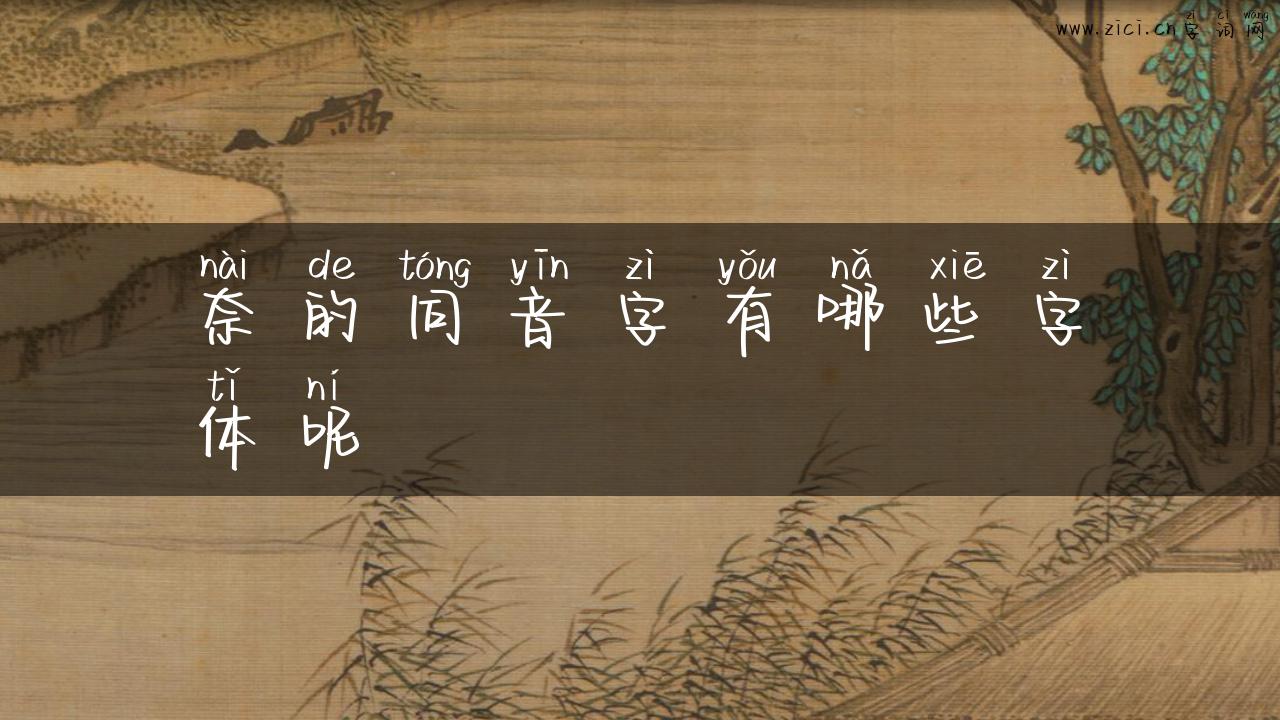 zì cí wǎng
www.zici.cn字词网
nài de tóng yīn zì yǒu nǎ xiē zì
奈的同音字有哪些字
tǐ ní
体呢